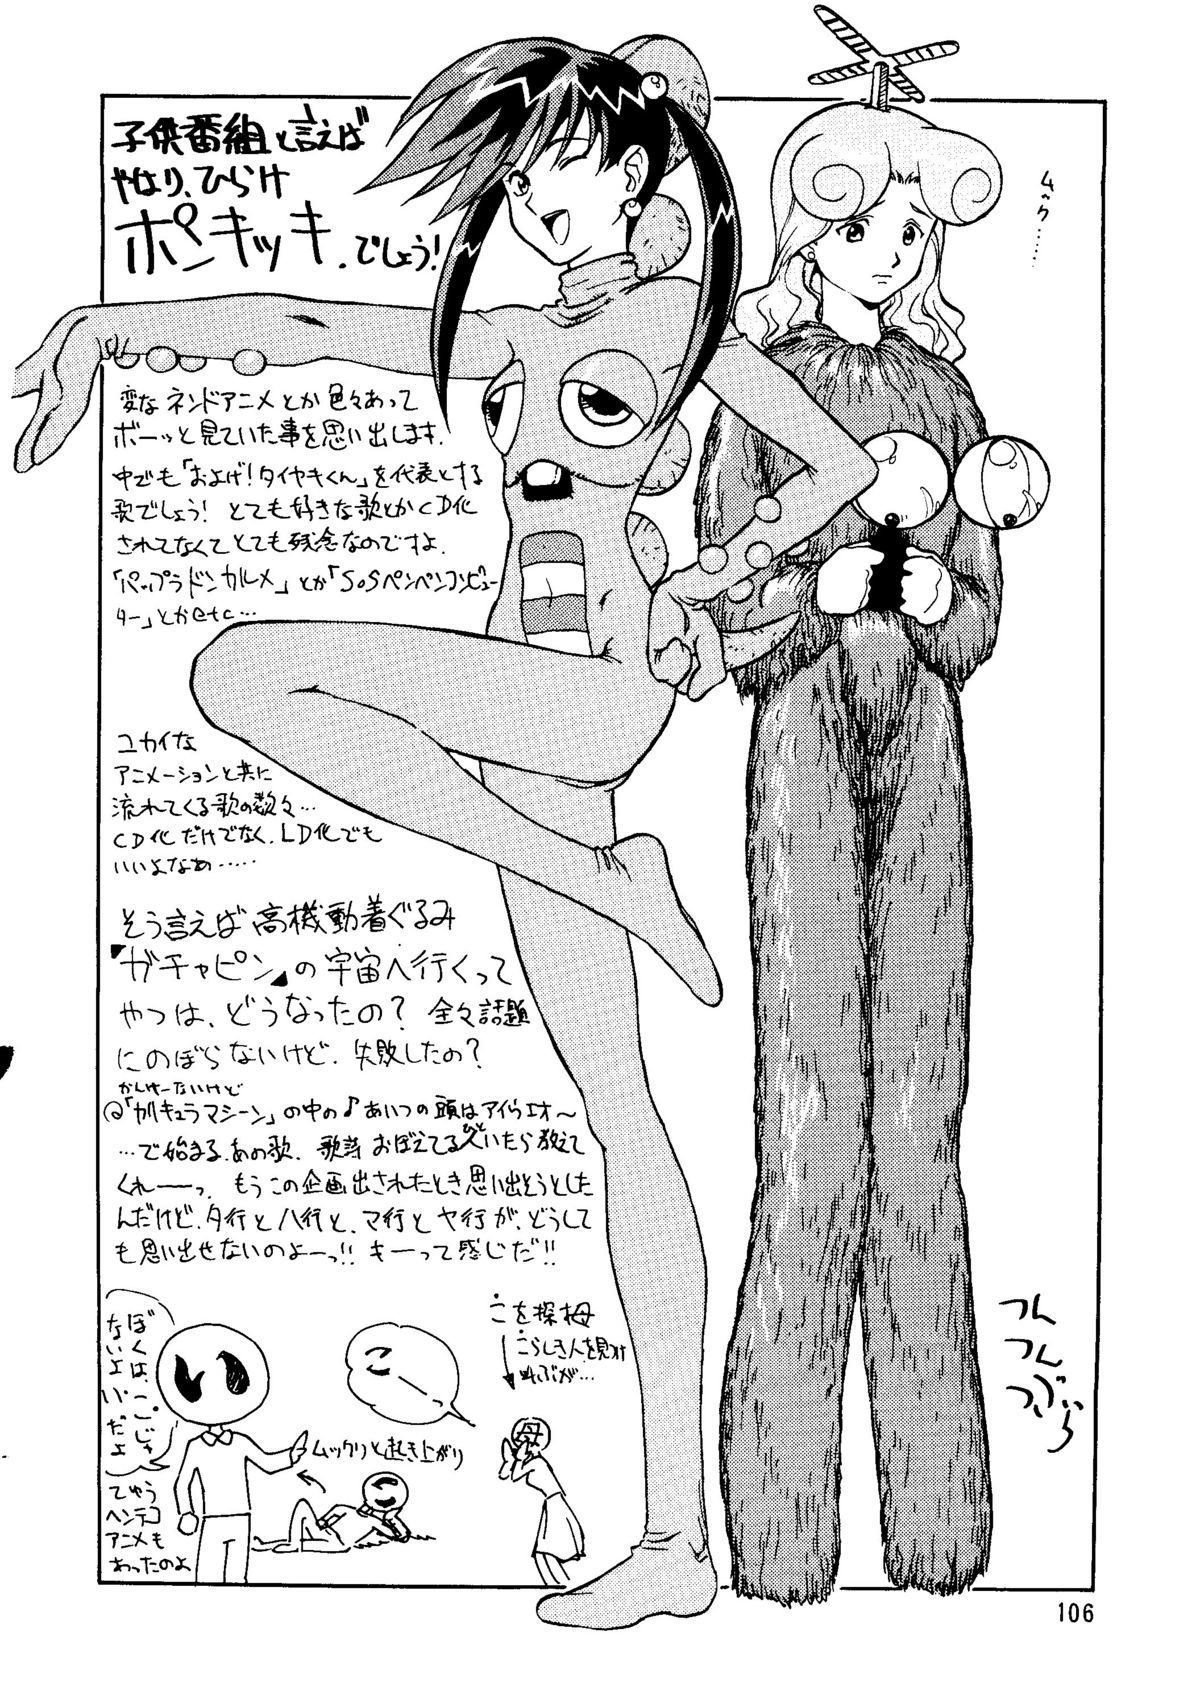 子供番組と言えば
やはり、ひらけ
ポンキッキ、でしょう!
ムック……
変なネンドアニメとか色々あって
ボーッと見ていた事を思い出します。
中でも「およげ!タイヤキくん」を代表とする
歌でしょう! とても好きな歌とかCD化
されてなくてとても残念なのですよ。
「パップラドンカルメ」とか「SOSペンペンコンピュー
ター」とかetc…
ユカイな
アニメーションと共に
流れてくる歌の数々…
CD化だけでなく、LD化でも
いいよなぁ……
そう言えば高機動着ぐるみ
『ガチャピン』の宇宙へ行くって
やつは、どうなったの? 全々話題
にのぼらないけど、失敗したの?
かんけーないけど
@「ガリキュラマシーン」の中の♪あいつの頭はアイウエオ〜
…で始まる、あの歌、歌詩おぼえてる人いたら教えて
くれーっ。もうこの企画出されたとき思い出そうとした
んだけど、タ行とハ行と、マ行とヤ行が、どうして
も思い出せないのよーっ!! キーって感じだ!!
ぼくは、こ、じゃ
ないよ い、だよ
てゆう
ヘンテコ
アニメも
あったのよ
こ
ムックリと起き上がり
こを探す母
こらしき人を見つけ
叫ぶが…
母
つん
つん
106